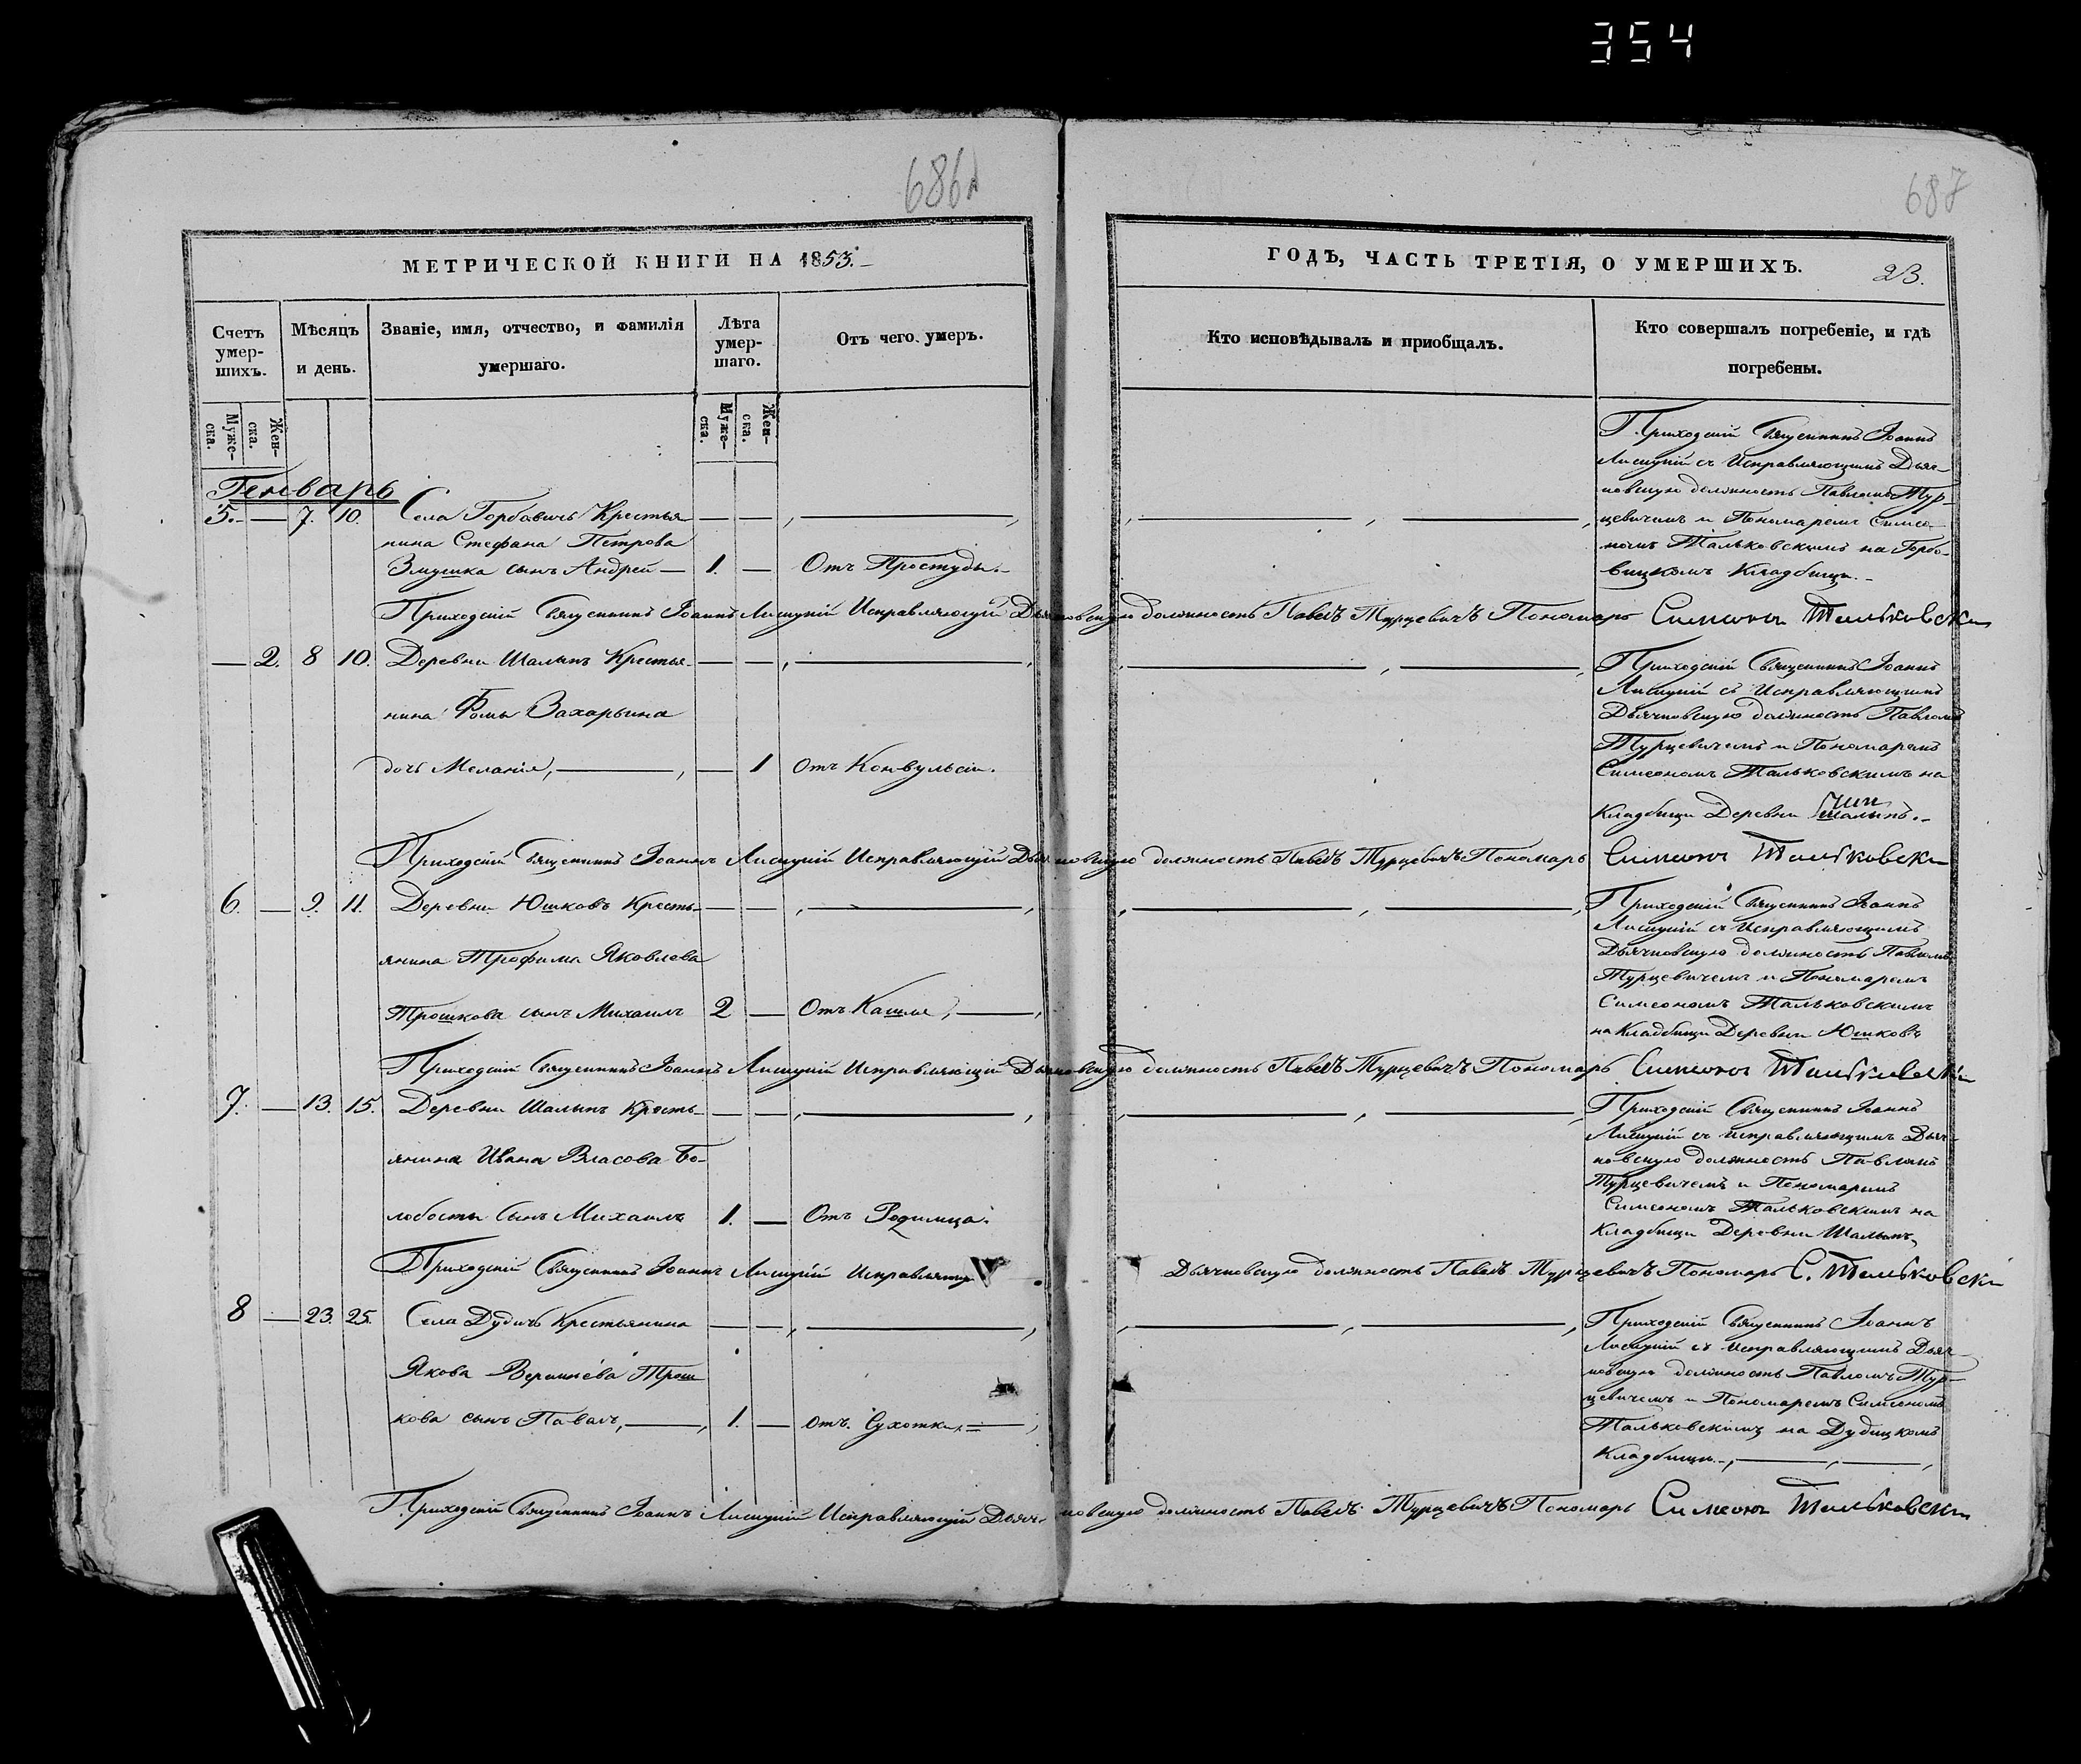 354
686
687
МЕТРИЧЕСКОЙ КНИГИ НА 1853.
ГОДѢ, ЧАСТЬ ТРЕТІЯ, О УМЕРШИХЪ.
23.
Счетъ умер-шихъ.
Мѣсяцъ и день.
Званіе, имя, отчество, и фамилія умершаго.
Лѣта умер-шаго.
Отъ чего умеръ.
Кто исповѣдывалъ и приобщалъ.
Кто совершалъ погребеніе, и гдѣ погребены.
Муже-ска.
Жен-ска.
Муже-ска.
Жен-ска.
Генварь
5. — 7. 10. Села Горбавичъ Крестья-
нина Стефана Петрова
Змушка сынъ Андрей — 1. — Отъ Простуды.
Приходскій Священникъ Іоаннъ
Лисицкій съ Исправляющимъ Дьяч-
ковскую должность Павломъ Тур-
цевичемъ и Пономаремъ Симео-
номъ Тальковскимъ на Горбо-
вицкомъ Кладбищи.
Приходскій Священникъ Іоаннъ Лисицкій Исправляющій Дьячковскую должность Павелъ Турцевичъ Пономарь Симеонъ Тальковски
— 2. 8 10. Деревни Шалыпъ Крестья-
нина Фомы Захарьина
дочь Меланія, — 1 Отъ Конвульсіи.
Приходскій Священникъ Іоаннъ
Лисицкій съ Исправляющимъ
Дьячковскую должность Павломъ
Турцевичемъ и Пономаремъ
Симеономъ Тальковскимъ на
Кладбищи Деревни Шалыпъ.
Приходскій Священникъ Іоаннъ Лисицкій Исправляющій Дьячковскую должность Павелъ Турцевичъ Пономарь Симеонъ Тальковски
6. — 9. 11. Деревни Юшковъ Кресть-
янина Трофима Яковлева
Трошкова сынъ Михаилъ 2 — Отъ Кашля,
Приходскій Священникъ Іоаннъ
Лисицкій съ Исправляющимъ
Дьячковскую должность Павломъ
Турцевичемъ и Пономаремъ
Симеономъ Тальковскимъ
на Кладбищи Деревни Юшковъ
Приходскій Священникъ Іоаннъ Лисицкій Исправляющій Дьячковскую должность Павелъ Турцевичъ Пономарь Симеонъ Тальковски
7. — 13. 15. Деревни Шалыпъ Кресть-
янина Ивана Власова Бо-
лобосты Сынъ Михаилъ 1. — Отъ Родимца.
Приходскій Священникъ Іоаннъ
Лисицкій съ исправляющимъ Дьяч-
ковскую должность Павломъ
Турцевичемъ и Пономаремъ
Симеономъ Тальковскимъ на
Кладбищи Деревни Шалыпъ
Приходскій Священникъ Іоаннъ Лисицкій Исправляющ Дьячковскую должность Павелъ Турцевичъ Пономарь С. Тальковски
8 — 23. 25. Села Дудичъ Крестьянина
Якова Трош-
кова сынъ Павелъ, 1. — Отъ Сухотки,
Приходскій Священникъ Іоаннъ
Лисицкій съ Исправляющимъ Дьяч-
ковскую должность Павломъ Тур-
цевичемъ и Пономаремъ Симеономъ
Тальковскимъ на Дудицкомъ
Кладбищи.
Приходскій Священникъ Іоаннъ Лисицкій Исправляющій Дьячковскую должность Павелъ Турцевичъ Пономарь Симеонъ Тальковски